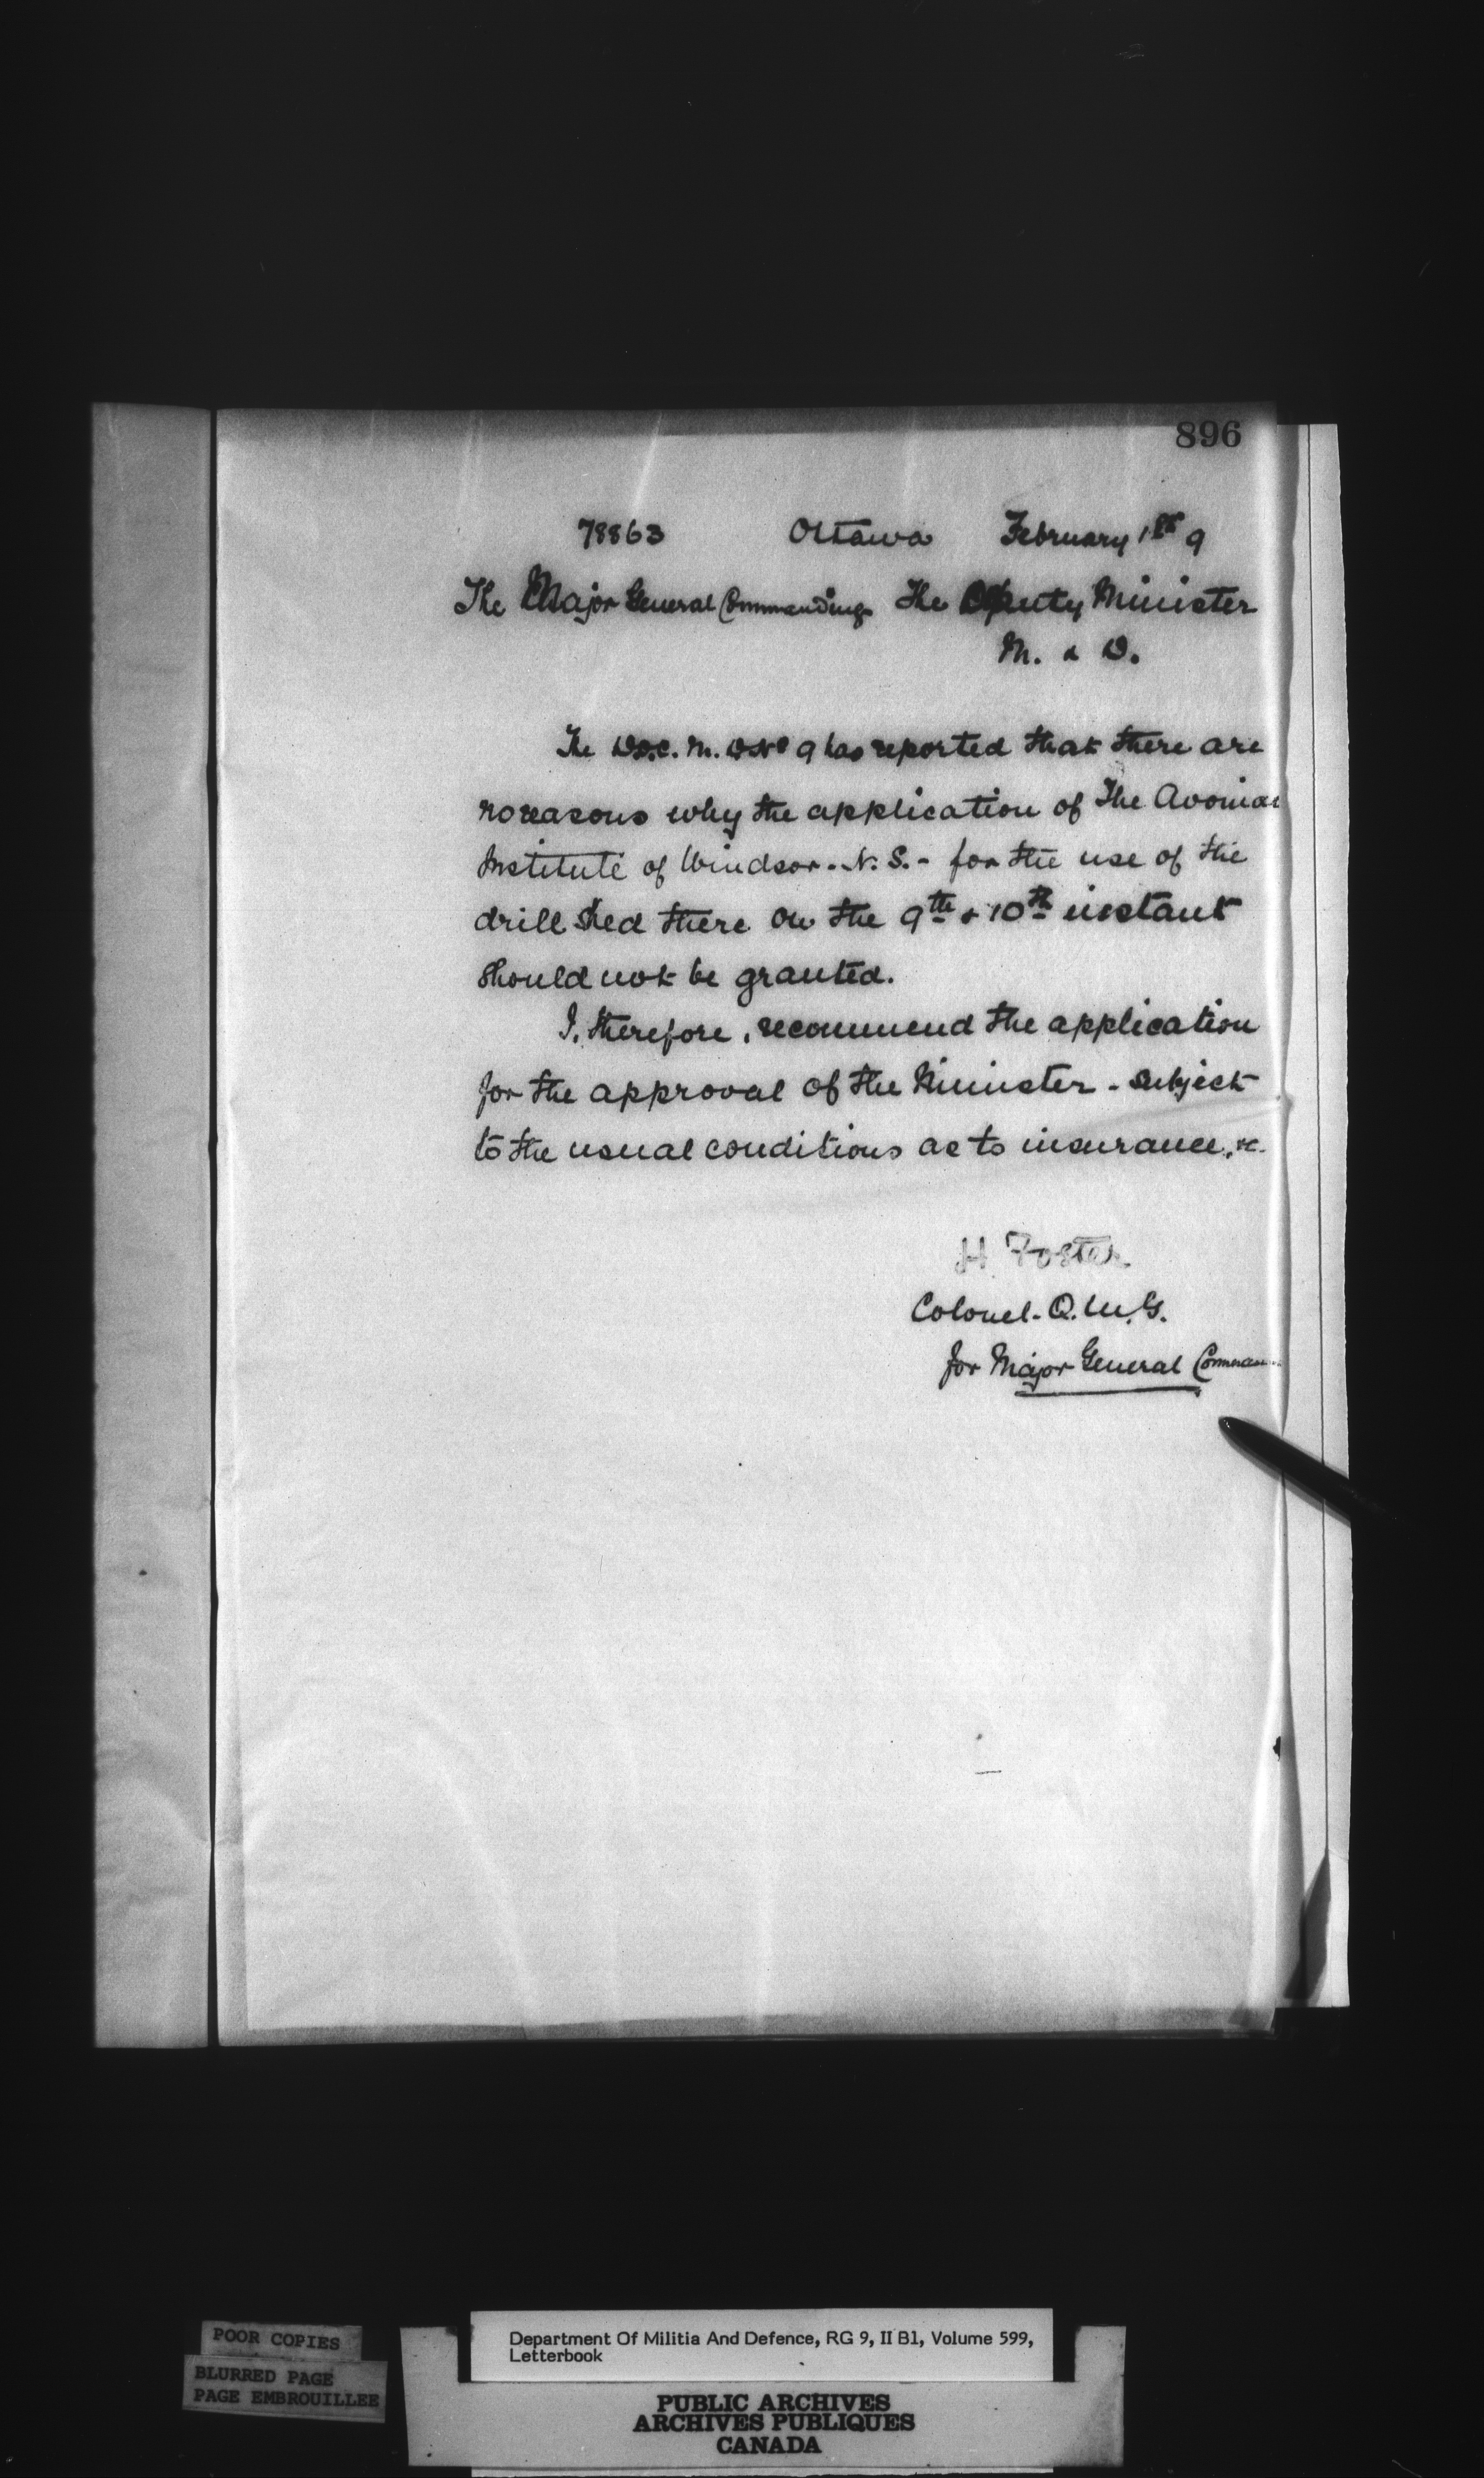 896
78863 Ottawa February 1st 9
The Major General Commanding The Deputy Minister
M. & D.
The D.O.C. M. D. No 9 has reported that there are
no reasons why the application of The Avonian
Institute of Windsor - N. S. - for the use of the
drill shed there on the 9th & 10th instant
should not be granted.
I, therefore, recommend the application
for the approval of the Minister - subject
to the usual conditions as to insurance, &c.
H Foster
Colonel - Q. M. G.
for Major General
POOR COPIES
BLURRED PAGE
PAGE EMBROUILLEE
Department Of Militia And Defence, RG 9, II B1, Volume 599,
Letterbook
PUBLIC ARCHIVES
ARCHIVES PUBLIQUES
CANADA